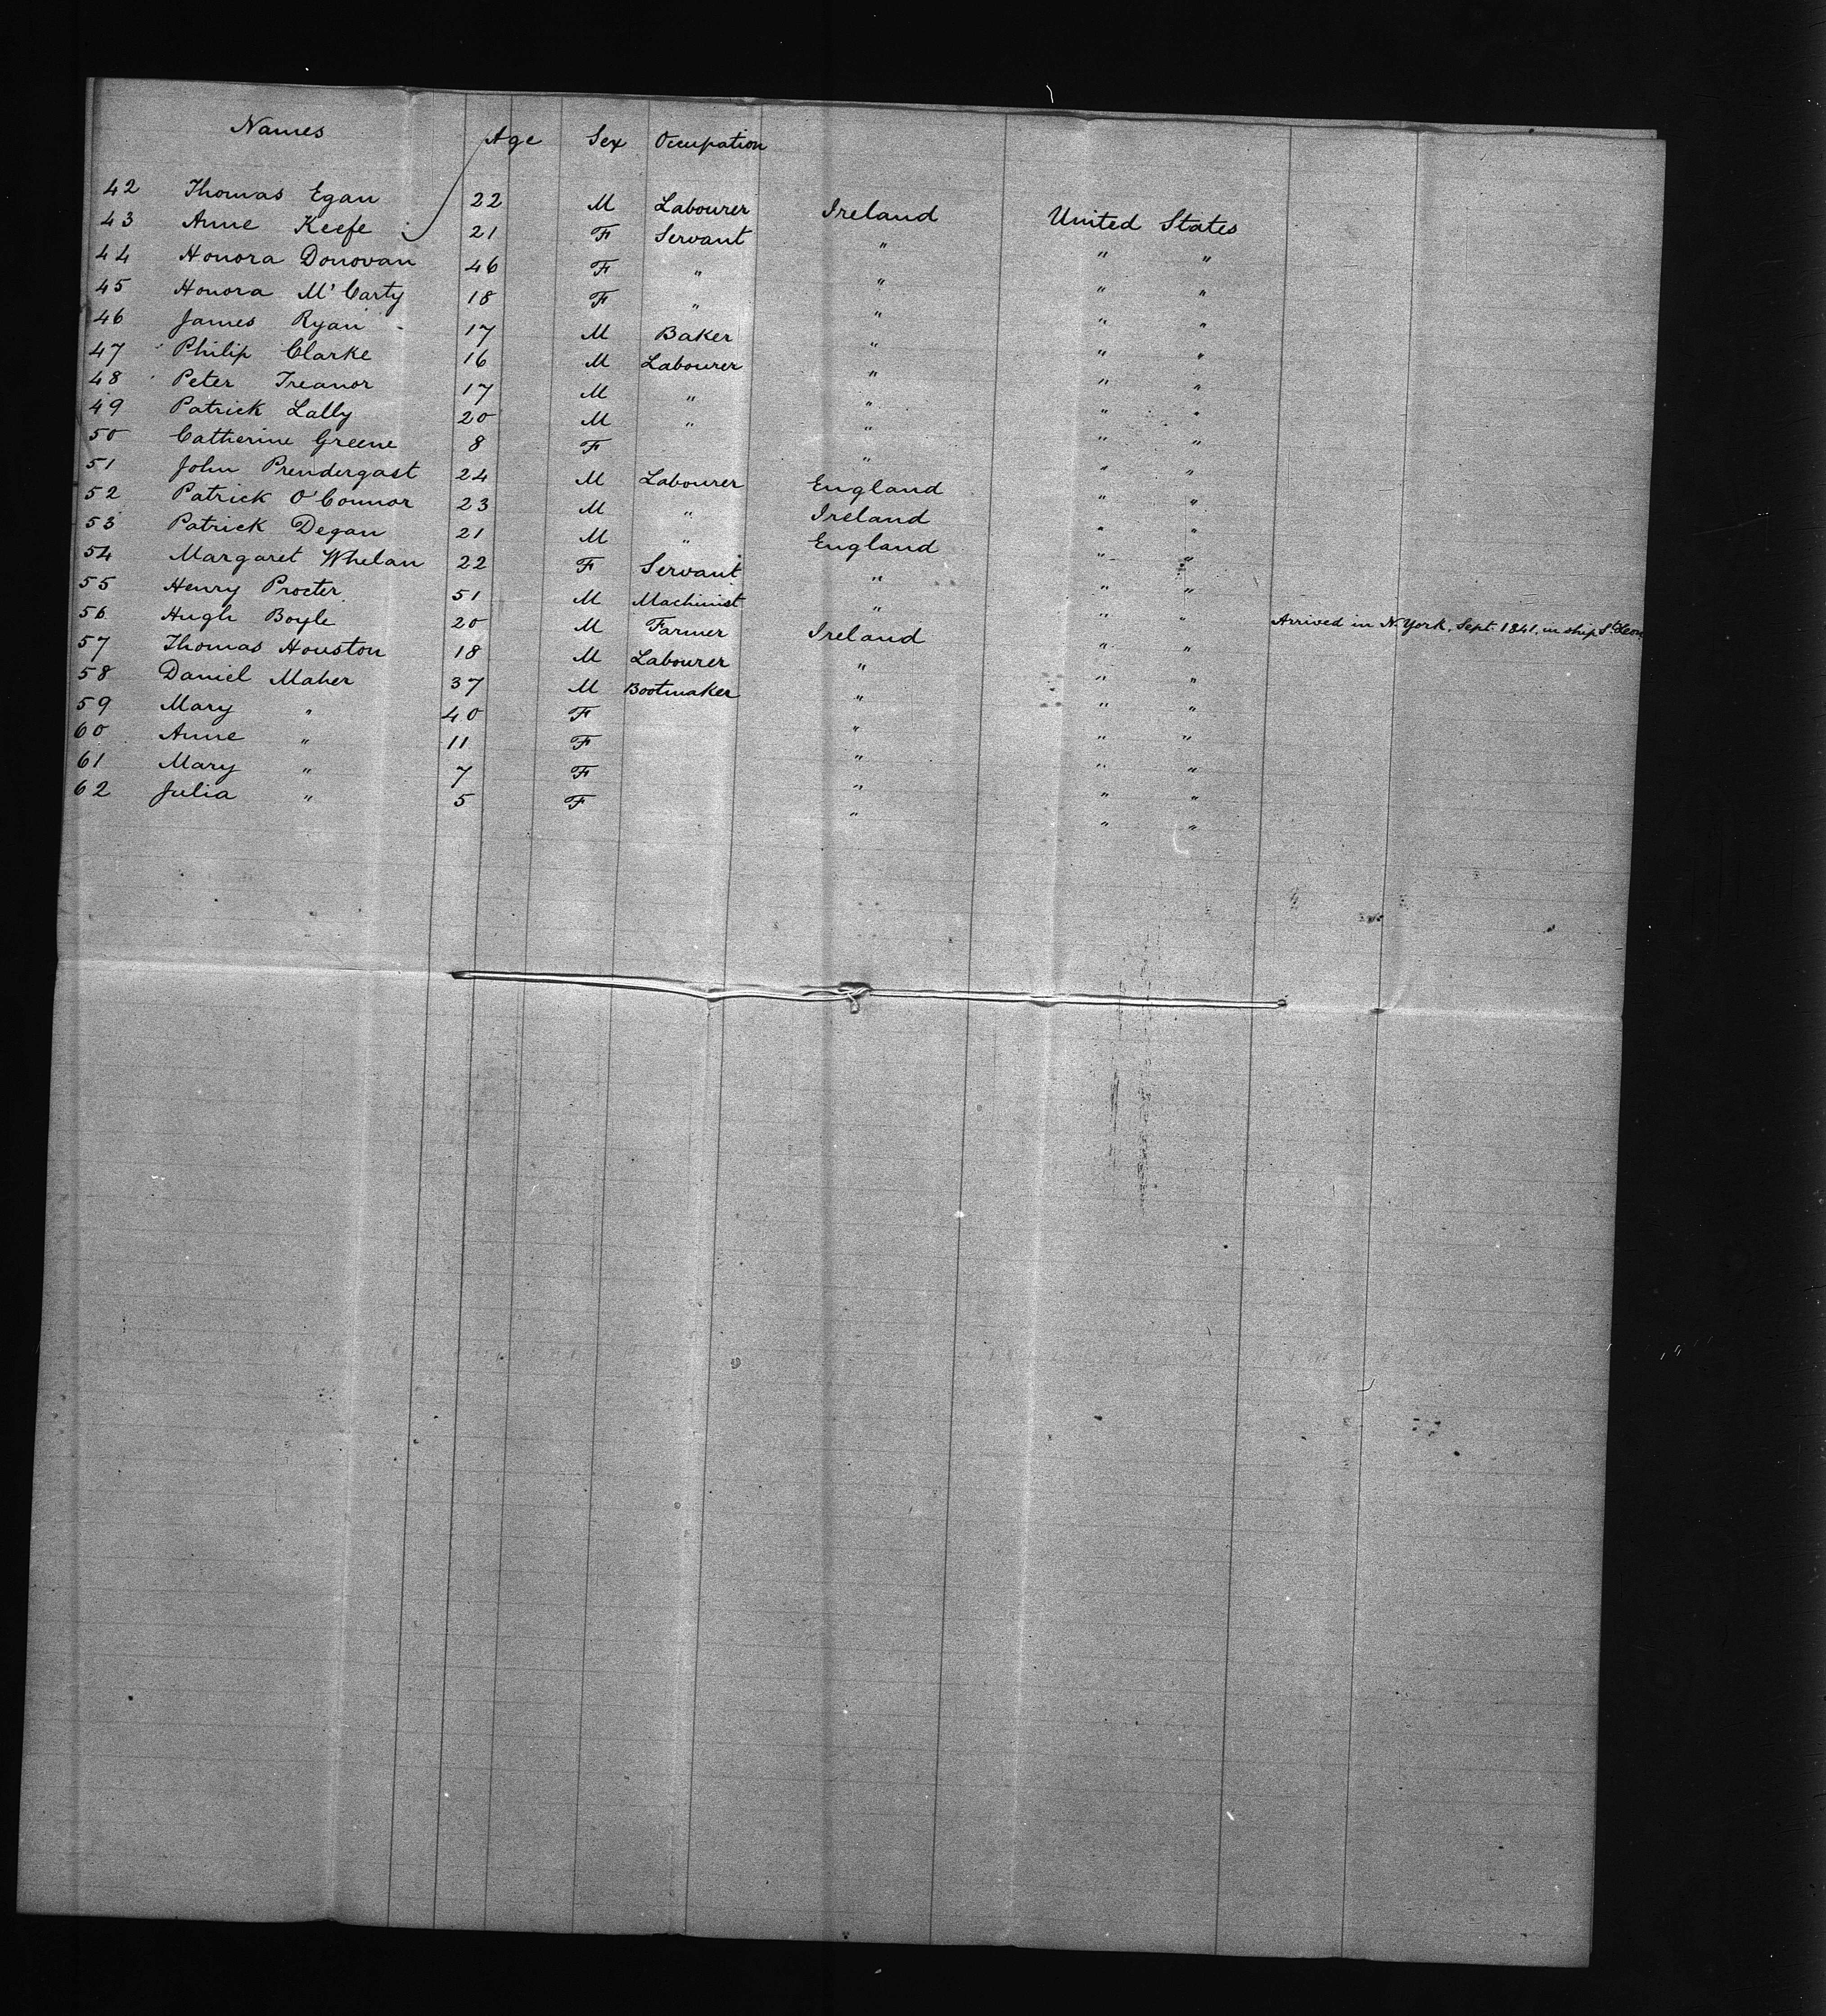 Names Age Sex Occupation
42 Thomas Egan 22 M Labourer Ireland United States
43 Anne Keefe 21 F Servant " " "
44 Honora Donovan 46 F " " " "
45 Honora M'Carty 18 F " " " "
46 James Ryan 17 M Baker " " "
47 Philip Clarke 16 M Labourer " " "
48 Peter Treanor 17 M " " " "
49 Patrick Lally 20 M " " " "
50 Catherine Greene 8 F " " "
51 John Prendergast 24 M Labourer England " "
52 Patrick O'Connor 23 M " Ireland " "
53 Patrick Degan 21 M " England " "
54 Margaret Whelan 22 F Servant " " "
55 Henry Procter 51 M Machinist " " " Arrived in N. York, Sept. 1841, in ship St. Leon
56 Hugh Boyle 20 M Farmer Ireland " "
57 Thomas Houston 18 M Labourer " " "
58 Daniel Maher 37 M Bootmaker " " "
59 Mary " 40 F " " "
60 Anne " 11 F " " "
61 Mary " 7 F " " "
62 Julia " 5 F " " "